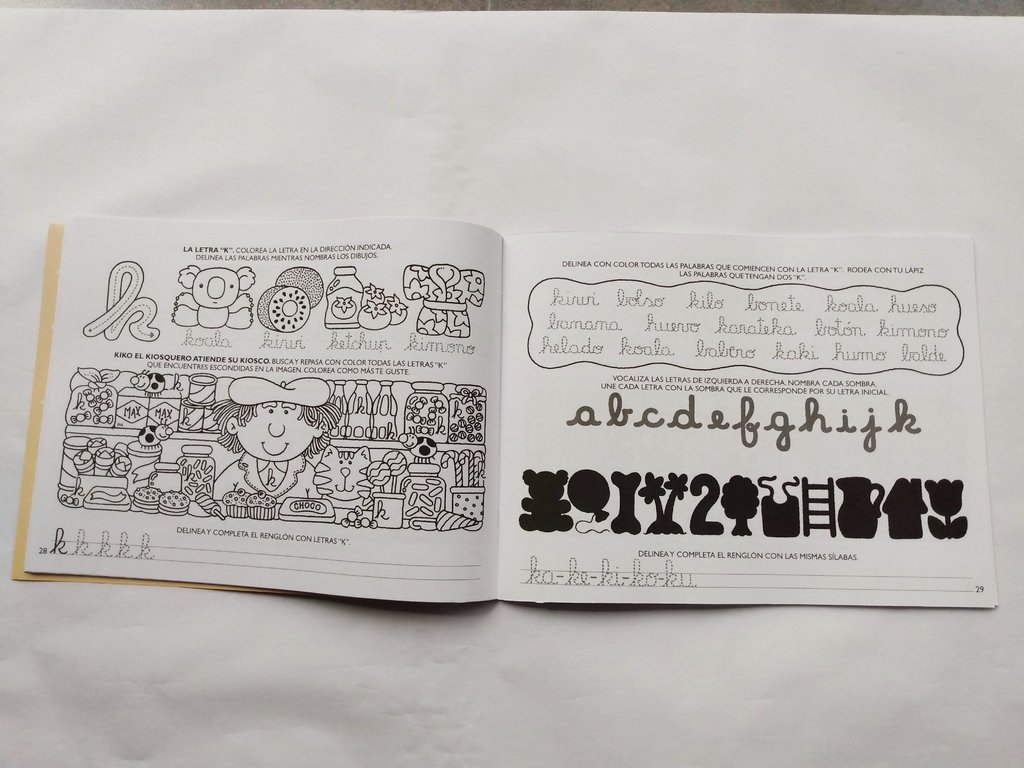 LA LETRA "K". COLOREA LA LETRA EN LA DIRECCIÓN INDICADA.
DELINEA LAS PALABRAS MIENTRAS NOMBRAS LOS DIBUJOS.
k
koala kiwi ketchup kimono
KIKO EL KIOSQUERO ATIENDE SU KIOSCO. BUSCA Y REPASA CON COLOR TODAS LAS LETRAS "K"
QUE ENCUENTRES ESCONDIDAS EN LA IMAGEN. COLOREA COMO MÁS TE GUSTE.
MAX MAX
k
CHOCO
DELINEA Y COMPLETA EL RENGLÓN CON LETRAS "K".
k k k k k
28
DELINEA CON COLOR TODAS LAS PALABRAS QUE COMIENCEN CON LA LETRA "K". RODEA CON TU LÁPIZ
LAS PALABRAS QUE TENGAN DOS "K".
kiwi bolso kilo bonete koala hueso
banana huevo karateka botón kimono
helado koala babero kaki humo balde
VOCALIZA LAS LETRAS DE IZQUIERDA A DERECHA. NOMBRA CADA SOMBRA.
UNE CADA LETRA CON LA SOMBRA QUE LE CORRESPONDE POR SU LETRA INICIAL.
a b c d e f g h i j k
DELINEA Y COMPLETA EL RENGLÓN CON LAS MISMAS SÍLABAS.
ka-ke-ki-ko-ku
29